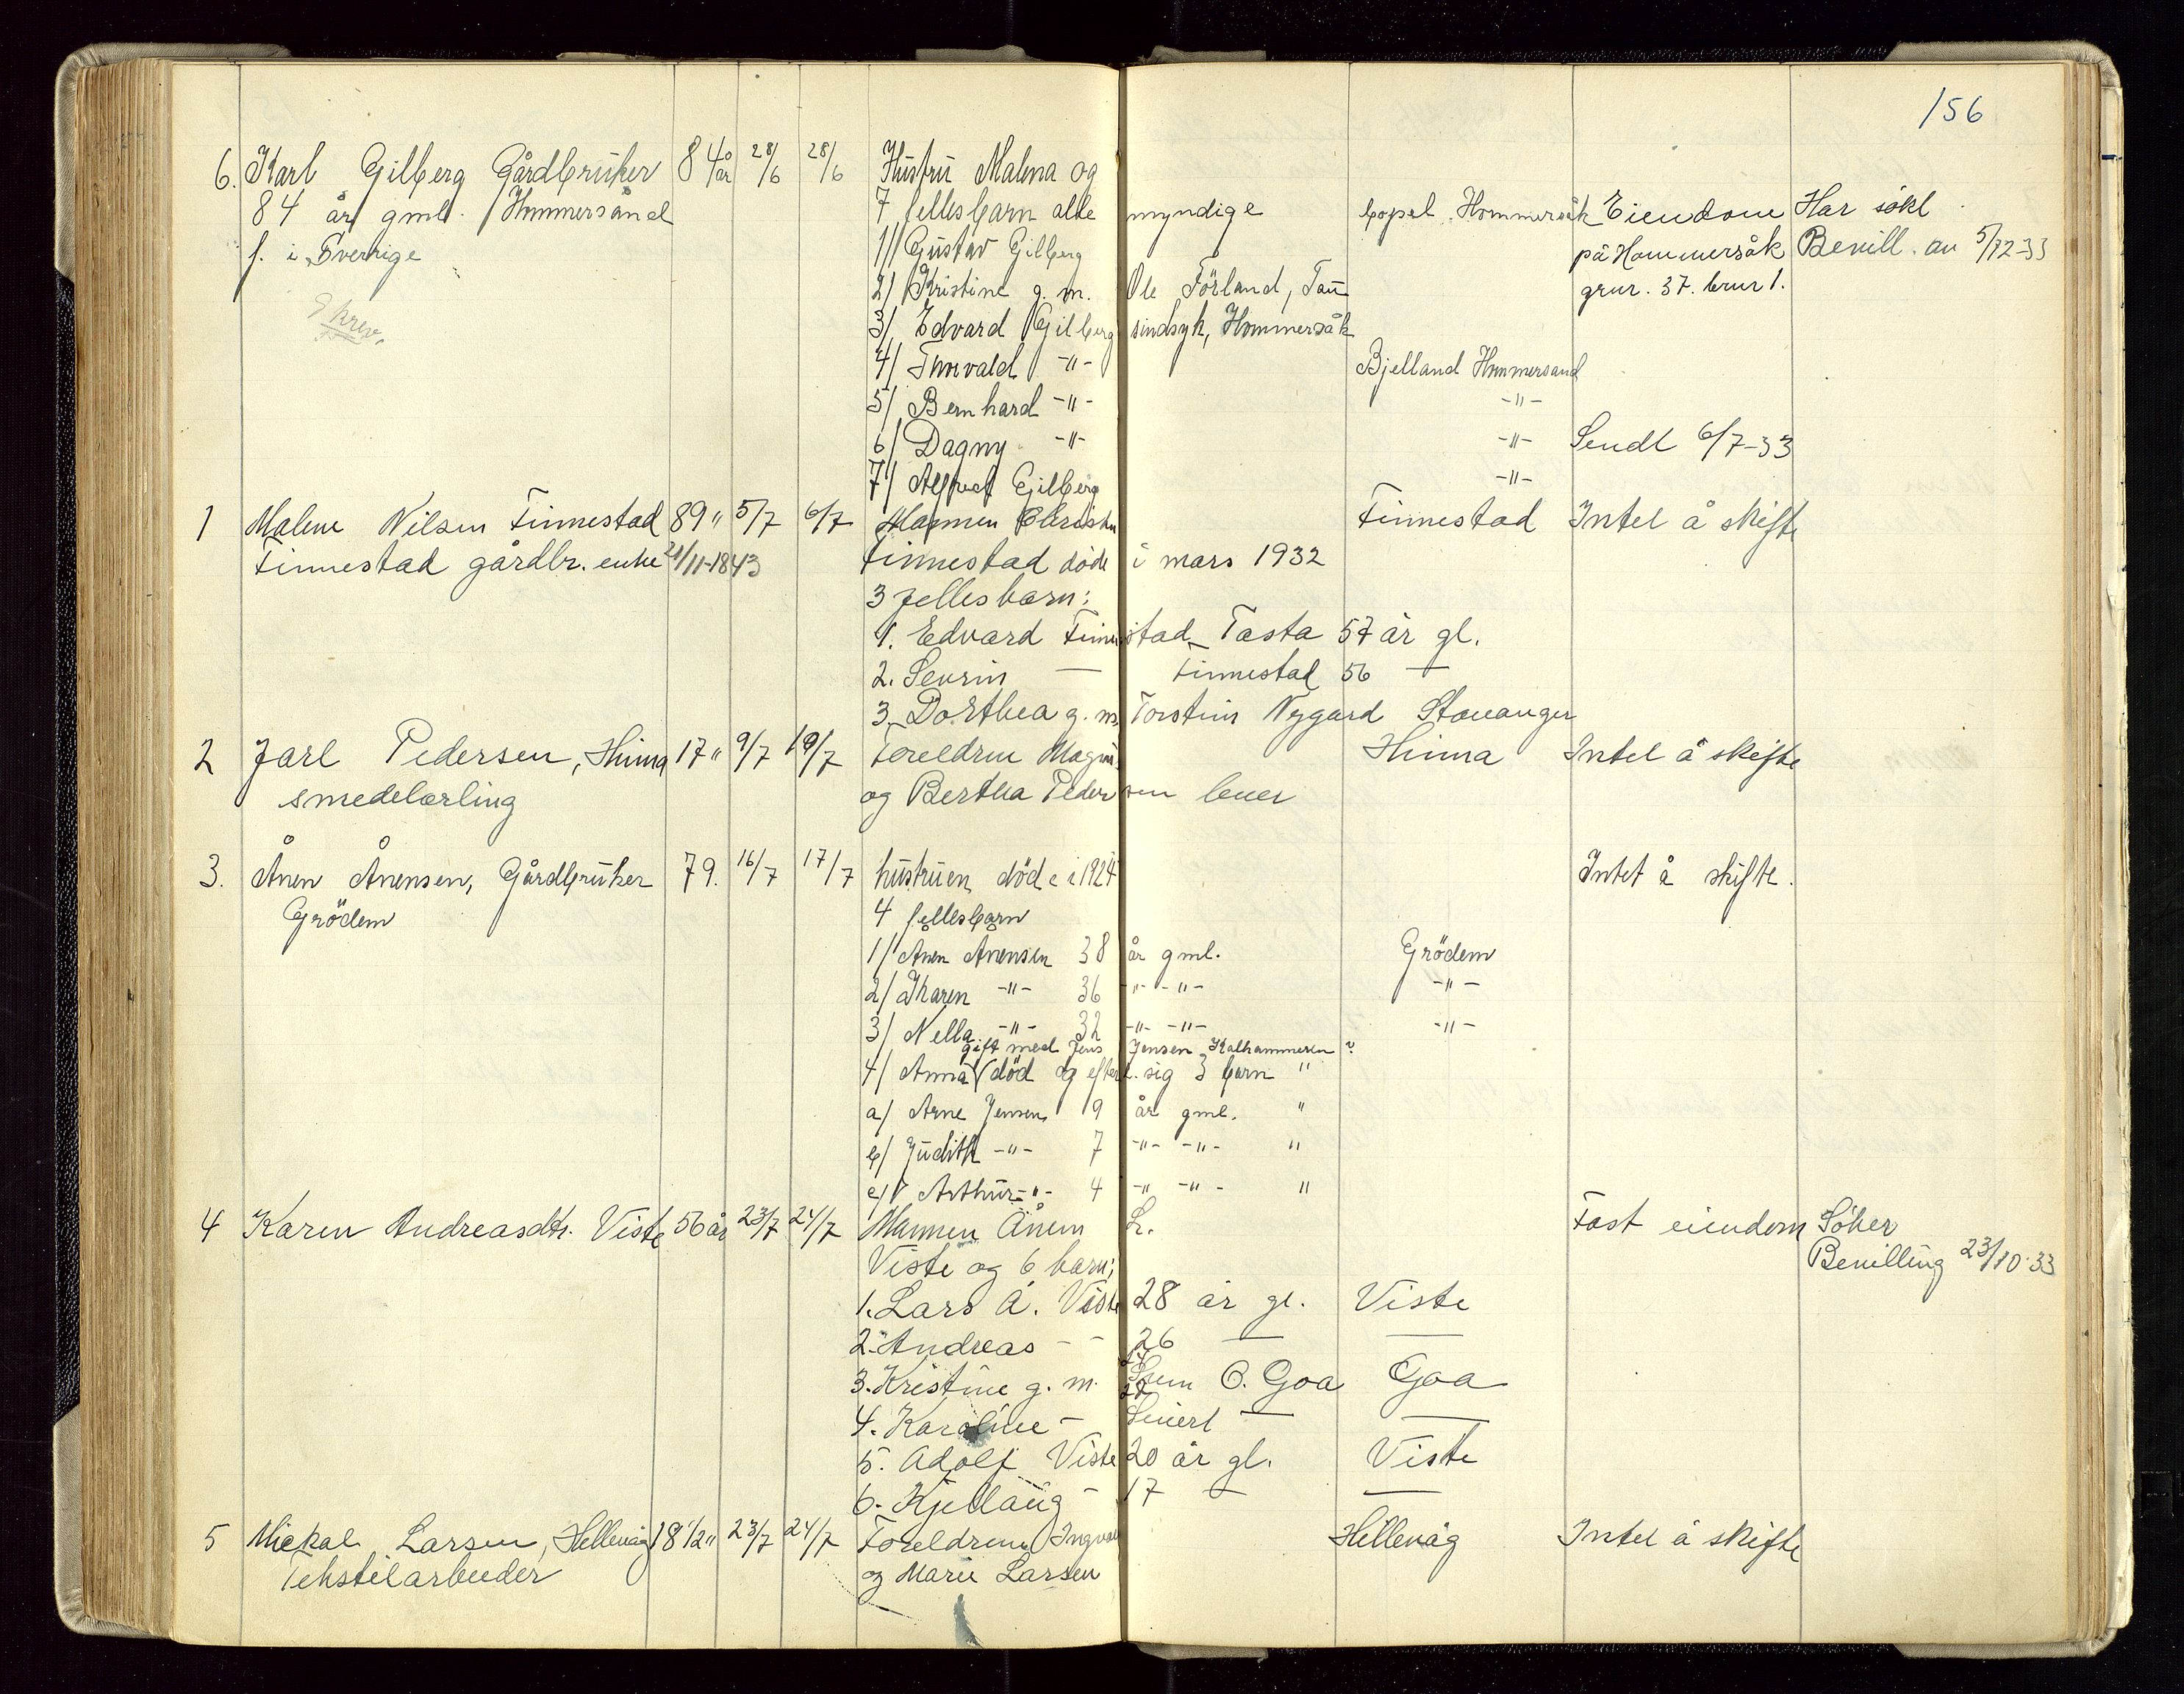 156
6. Karl Gilberg Gårdbruker 84 år 28/6 28/6 Hustru Malena og
84 år gml. Hommersand 7 fellesbarn alle myndige Hommersåk Eiendom Har søkt
f. i Sverige 1/ Gustav Gilberg på Hommersåk Bevill. av 5/12-33
2/ Kristine g. m. Ole Förland, Tau grnr. 37. brnr 1.
Skrev.
3/ Edvard Gilberg sindsyk, Hommersåk
4/ Thorvald -"- Bjelland Hommersand
5/ Bernhard -"- -"-
6/ Dagny -"- -"- Sendt 6/7-33
7/ Alfred Gilberg -"-
1 Malene Nilsen Finnestad 89 " 5/7 6/7 Mannen Finnestad Intet å skifte
Finnestad gårdbr. enke 21/11-1843 Finnestad døde i mars 1932
3 fellesbarn:
1. Edvard Finnestad Tasta 57 år gl.
2. Sevrin — Finnestad 56 —
3. Dorthea g. m. Torstein Nygard Stavanger
2 Jarl Pedersen, Hinna 17 " 9/7 10/7 Foreldrene Magnus Hinna Intet å skifte
smedlærling og Bertha Pedersen lever
3. Ånen Ånensen, Gårdbruker 79. 16/7 17/7 hustruen döde i 1924 Intet å skifte.
Grödem 4 fellesbarn
1/ Ånen Ånensen 38 år gml. Grödem
2/ Karen -"- 36 -"- -"- -"-
3/ Nella -"- 32 -"- -"- -"-
gift med Jens Jensen Kalhammeren ?
4/ Anna (död og efterl. sig 3 barn "
a/ Arne Jensen 9 år gml. "
b/ Judith -"- 7 -"- -"- "
c/ Arthur -"- 4 -"- -"- "
4 Karen Andreasdtr. Viste 56 år 23/7 24/7 Mannen Ånen L. Fast eiendom Söker
Viste og 6 barn; Bevilling 23/10-33
1. Lars Å. Viste 28 år gl. Viste
2. Andreas - - 26 — —
3. Kristine g. m. Sven O. Goa Goa
4. Karoline - Sivert — —
5. Adolf Viste 20 år gl. Viste
6. Kjellaug - 17 — —
5 Mickal Larsen, Hellevåg 18 1/2 " 23/7 24/7 Foreldrene Ingvald Hellevåg Intet å skifte
Tekstilarbeider og Marie Larsen